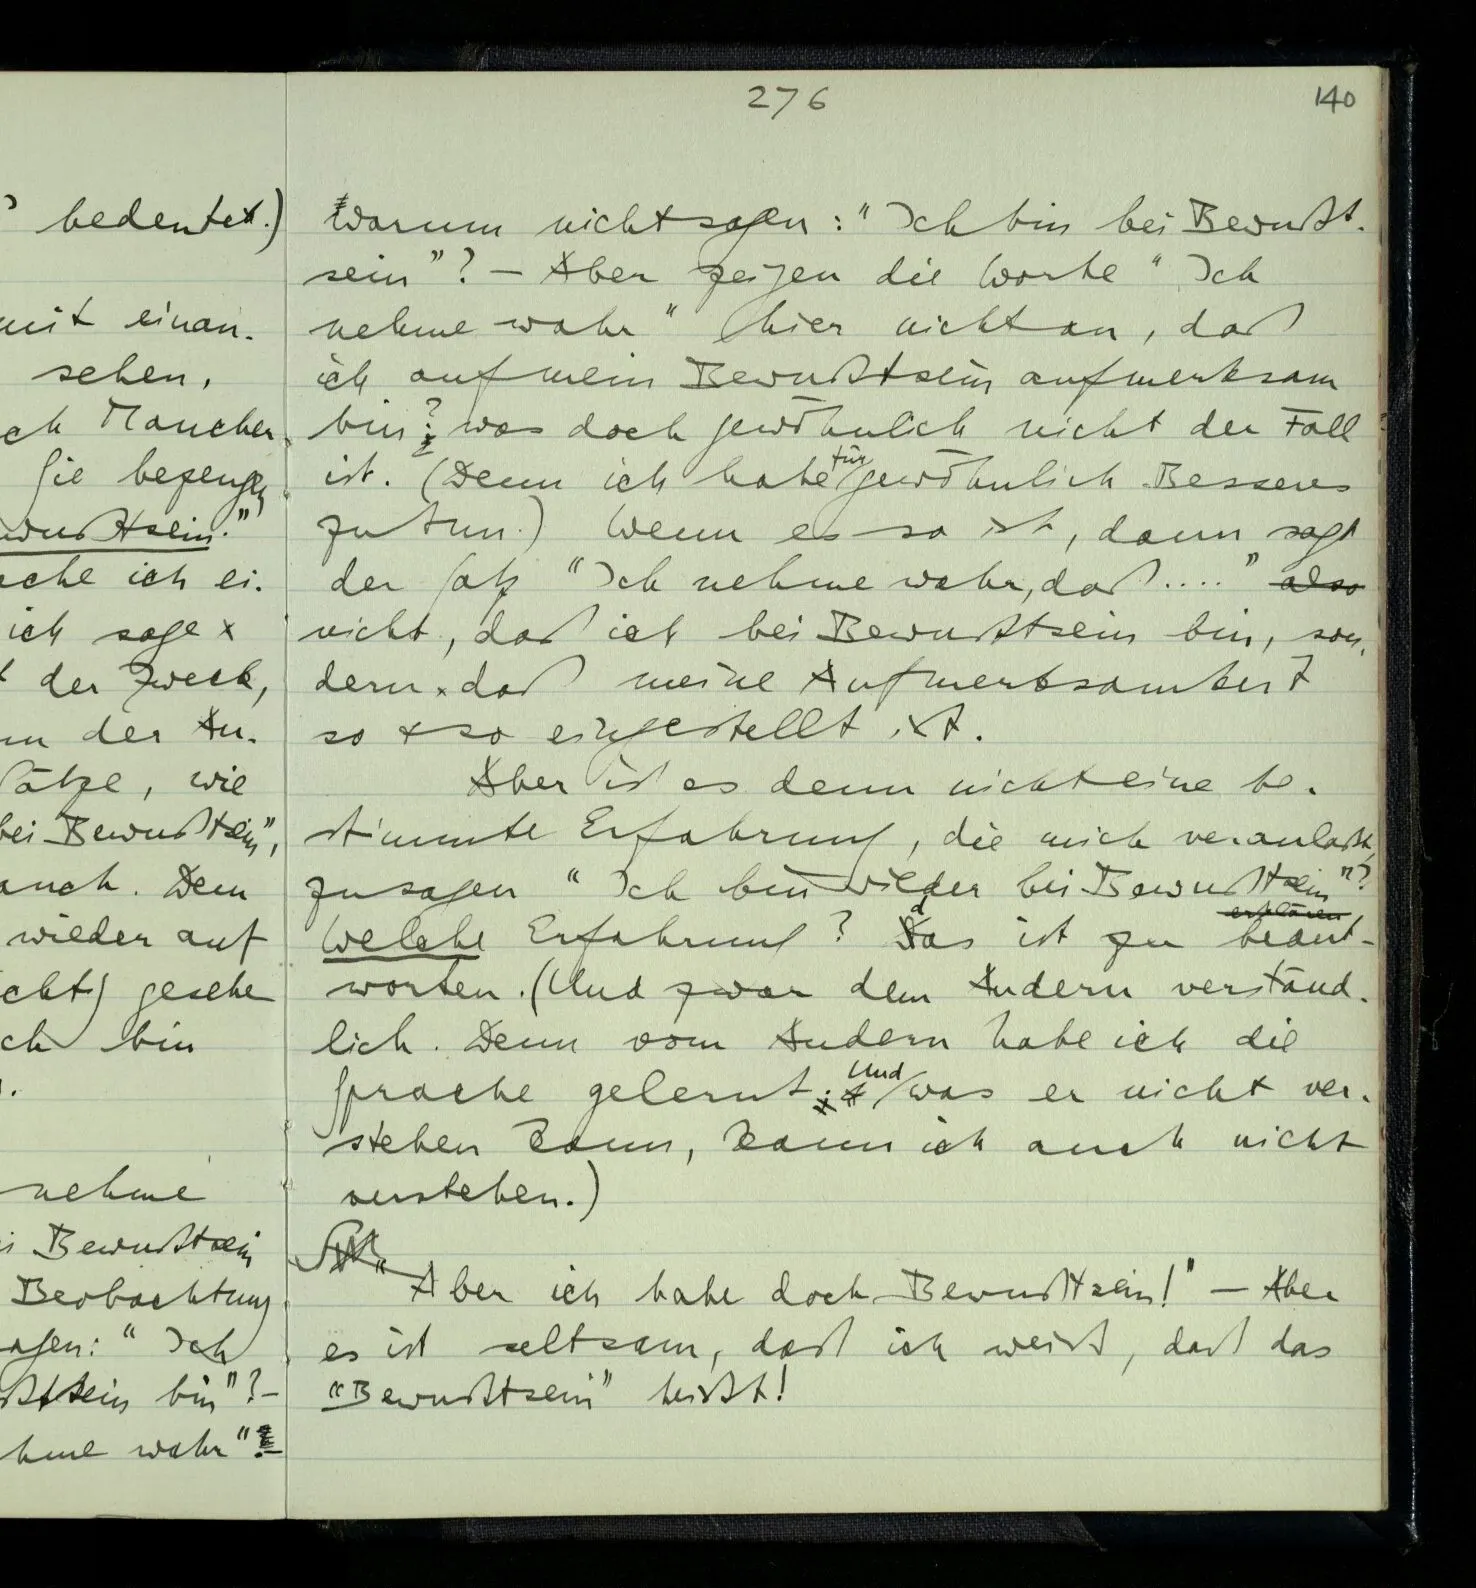 276
140
bedeutet.)
mit einan-
sehen,
Mancher
Sie bezeugen
wußtsein."
ich ei-
ich sage
der Zweck,
der An-
wie
bei Bewußtsein",
auch. Dem
wieder auf
gesehen
bin
nehme
Bewußtsein
Beobachtung
"Ich
bin"? –
wahr"
Warum nicht sagen: "Ich bin bei Bewußt-
sein"? – Aber zeigen die Worte "Ich
nehme wahr" hier nicht an, daß
ich auf mein Bewußtsein aufmerksam
bin? was doch gewöhnlich nicht der Fall
ist. (Denn ich habe für gewöhnlich Besseres
zu tun.) Wenn es so ist, dann sagt
der Satz "Ich nehme wahr, daß ...." also
nicht, daß ich bei Bewußtsein bin, son-
dern daß meine Aufmerksamkeit
so & so eingestellt ist.
Aber ist es denn nicht eine be-
stimmte Erfahrung, die mich veranlaßt,
zu sagen "Ich bin wieder bei Bewußtsein"?
Welche Erfahrung? das ist zu erklären beant-
worten. (Und zwar dem Andern verständ-
lich. Denn vom Andern habe ich die
Sprache gelernt. Und was er nicht ver-
stehen kann, kann ich auch nicht
verstehen.)
"Aber ich habe doch Bewußtsein!" – Aber
es ist seltsam, daß ich weiß, daß das
"Bewußtsein" heißt!